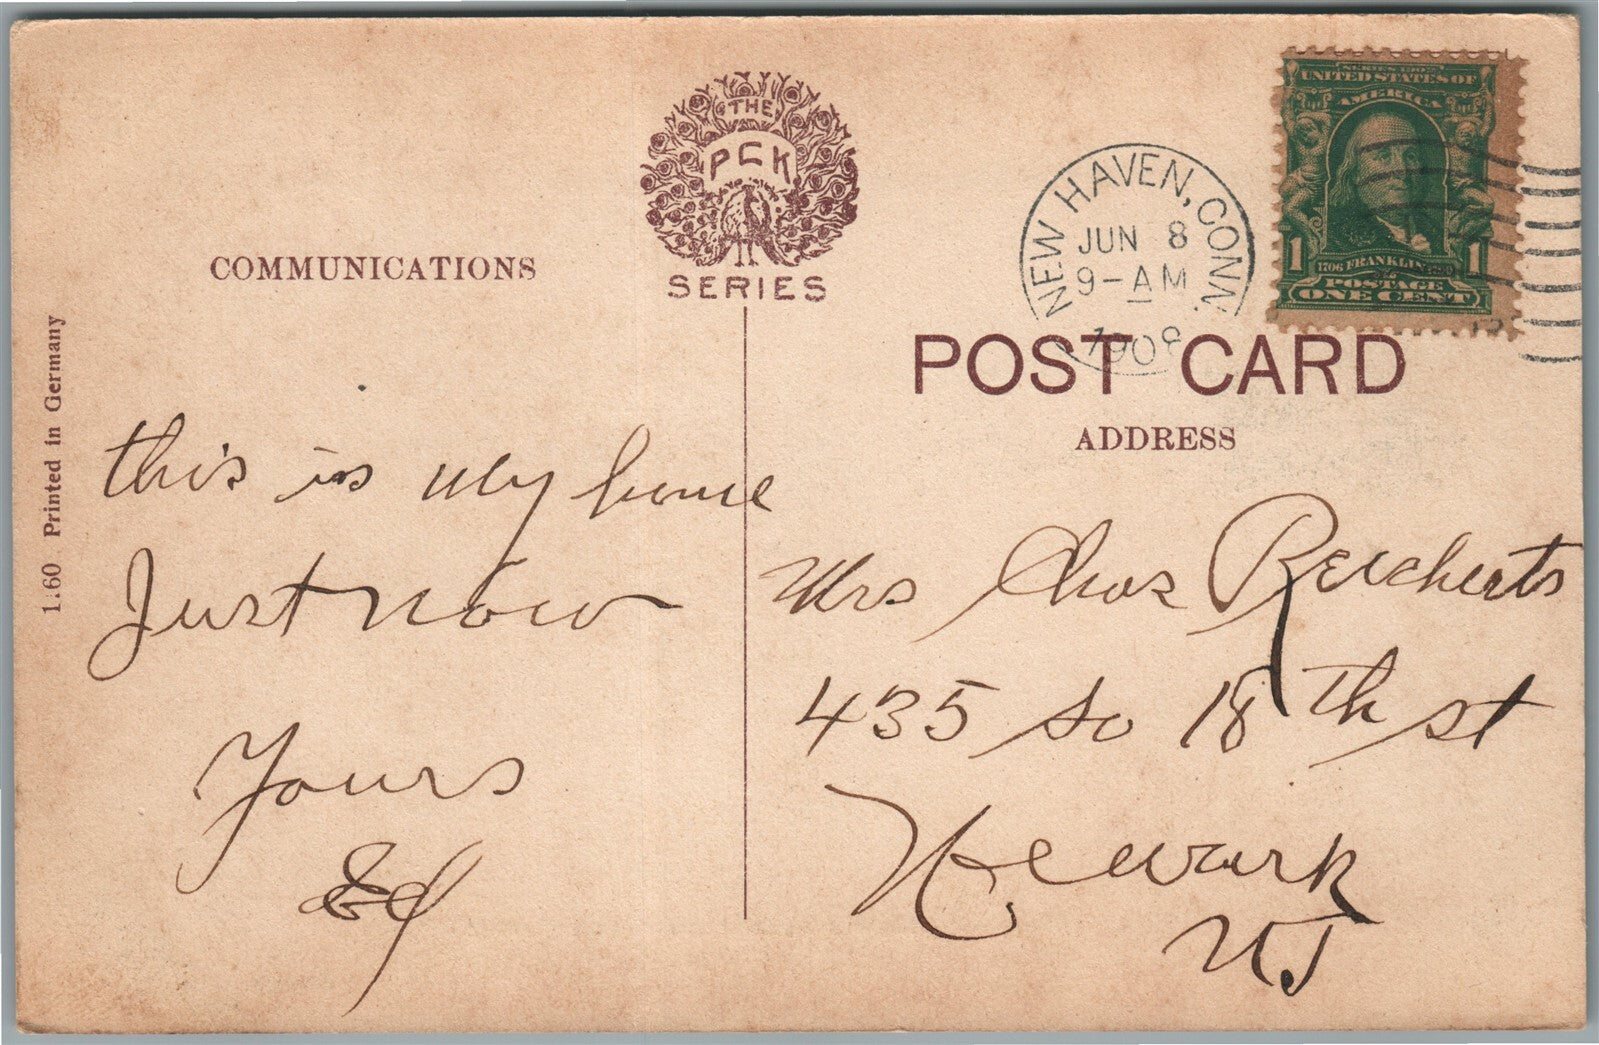 THE
PCK
SERIES
COMMUNICATIONS
1.60. Printed in Germany
this is My home
Just now
Yours
Ed
NEW HAVEN, CONN.
JUN 8
9-AM
1908
SERIES 1902
UNITED STATES OF
AMERICA
1 1
1706 FRANKLIN 1790
POSTAGE
ONE CENT
POST CARD
ADDRESS
Mrs Chas Reicherts
435 So 18th st
Newark
NJ